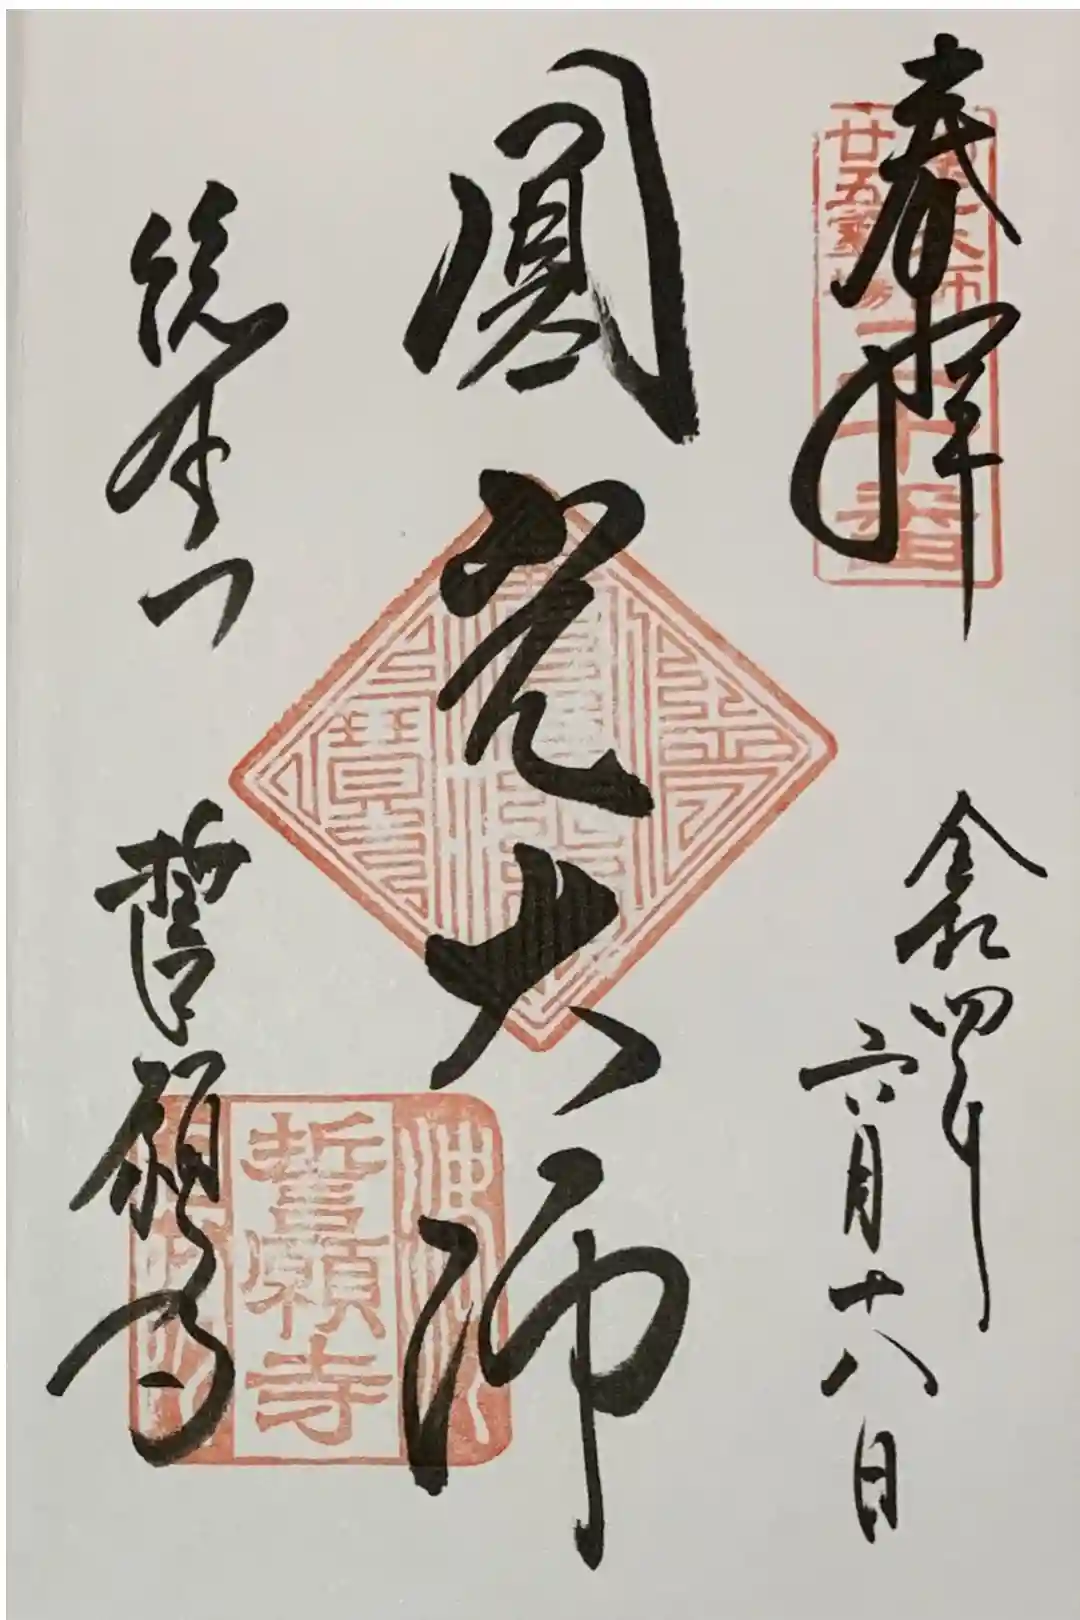 奉拝
令和四年
六月十八日
廿五霊場
二十番
圓光大師
総本山
誓願寺
誓願寺